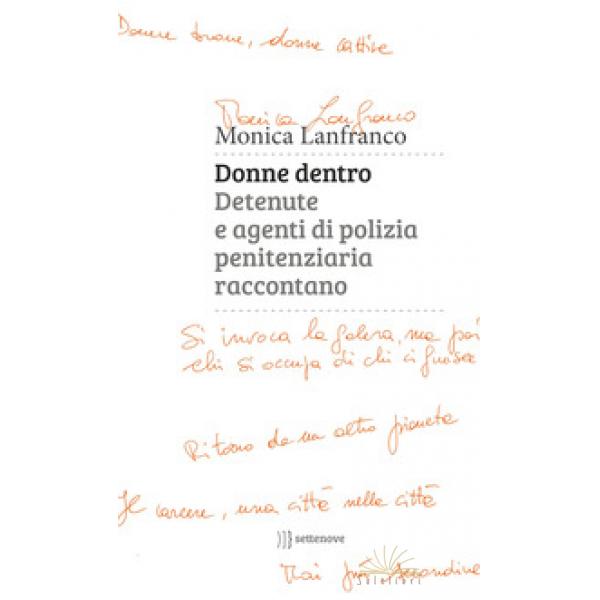 Donne buone, donne cattive
Monica Lanfranco
Monica Lanfranco
Donne dentro
Detenute
e agenti di polizia
penitenziaria
raccontano
Si invoca la galera, ma poi
chi si occupa di chi ci finisce
Ritorno da un altro pianeta
Il carcere, una città nella città
settenove
Mai più secondine
Sololibri